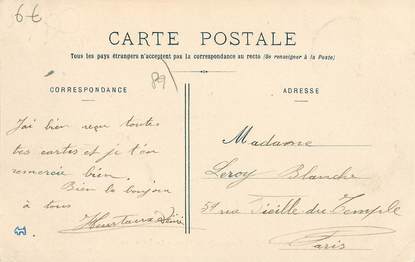 6€
CARTE POSTALE
Tous les pays étrangers n'acceptent pas la correspondance au recto (Se renseigner à la Poste)
89
CORRESPONDANCE
ADRESSE
J'ai bien reçu toutes
tes cartes et je t'en
remercie bien.
Bien le bonjour
à tous
Madame
Leroy Blanche
51 rue Vieille du Temple
Paris